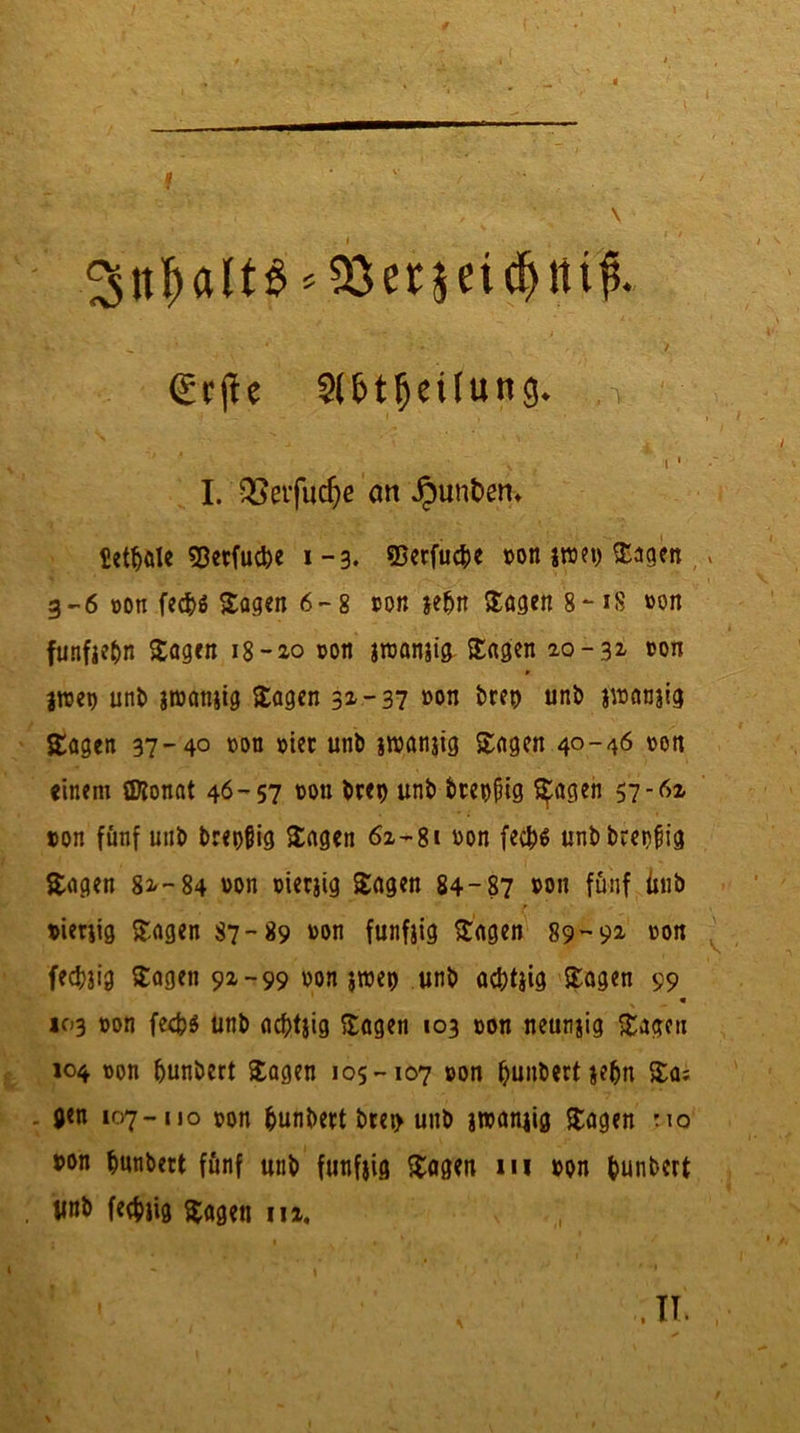 Inhalts-Verzeichniß.
Erste Abtheilung.
I. Versuche an Hunden.
Lethale Versuche 1-3. Versuche von zwey Tagen
3-6 von sechs Tagen 6-8 von zehn Tagen 8-18 von
funfzehn Tagen 18-20 von zwanzig Tagen 20-32 von
zwey und zwanzig Tagen 32-37 von drey und zwanzig
Tagen 37-40 von vier und zwanzig Tagen 40-46 von
einem Monat 46-57 von drey und dreyßig Tagen 57-62
von fünf und dreyßig Tagen 62-81 von sechs und dreyßig
Tagen 82-84 von vierzig Tagen 84-87 von fünf und
vierzig Tagen 87-89 von funfzig Tagen 89-92 von
sechzig Tagen 92-99 von zwey und achtzig Tagen 99
103 von sechs und achtzig Tagen 103 von neunzig Tagen
104 von hundert Tagen 105-107 von hundert zehn Ta-
gen 107-110 von hundert drey und zwanzig Tagen 110
von hundert fünf und funfzig Tagen 111 von hundert
und sechzig Tagen 112.
II.